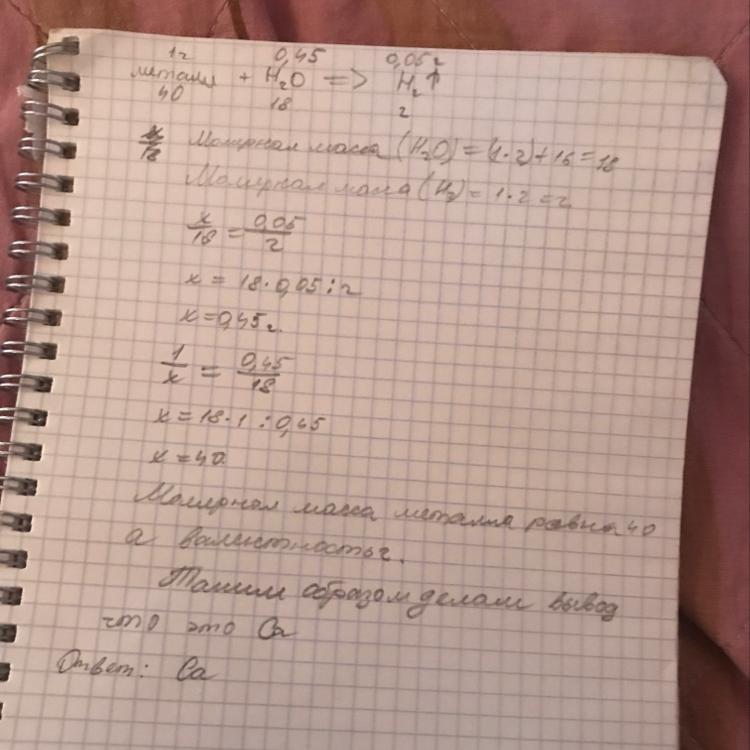 1г 0,45 0,05 г
металл + H₂O => H₂↑
40 18 2
x/18 Молярная масса (H₂O) = (1·2)+16=18
Молярная масса (H₂) = 1·2=2
x/18 = 0,05/2
x = 18·0,05:2
x=0,45г.
1/x = 0,45/18
x=18·1:0,45
x=40.
Молярная масса металла равна 40
а валентность 2.
Таким образом делам вывод
что это Ca
Ответ: Ca